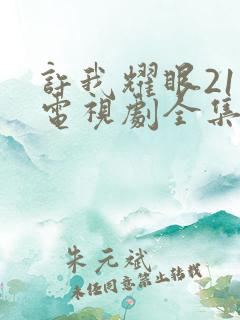 許我耀眼21
電視劇全集
朱元斌
未任同意禁止转载